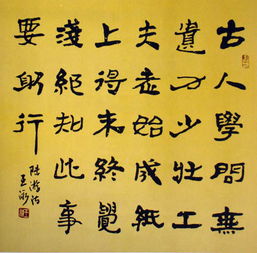 古人學問無
遺力少壯工
夫老始成紙
上得來終覺
淺絕知此事
要躬行
陸游詩